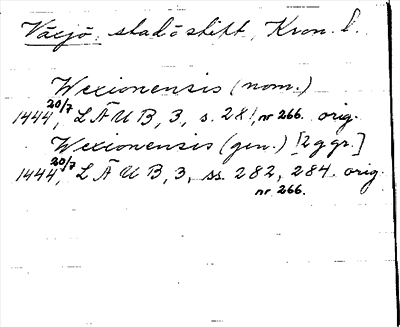 Växjö, stad o stift, Kron. l.
Wexionensis (nom.)
1444 20/7, LÄUB, 3, s. 281, nr 266. orig.
Wexionensis (gen.) [2 ggr.]
1444 20/7, LÄUB, 3, ss. 282, 284. orig.
nr 266.